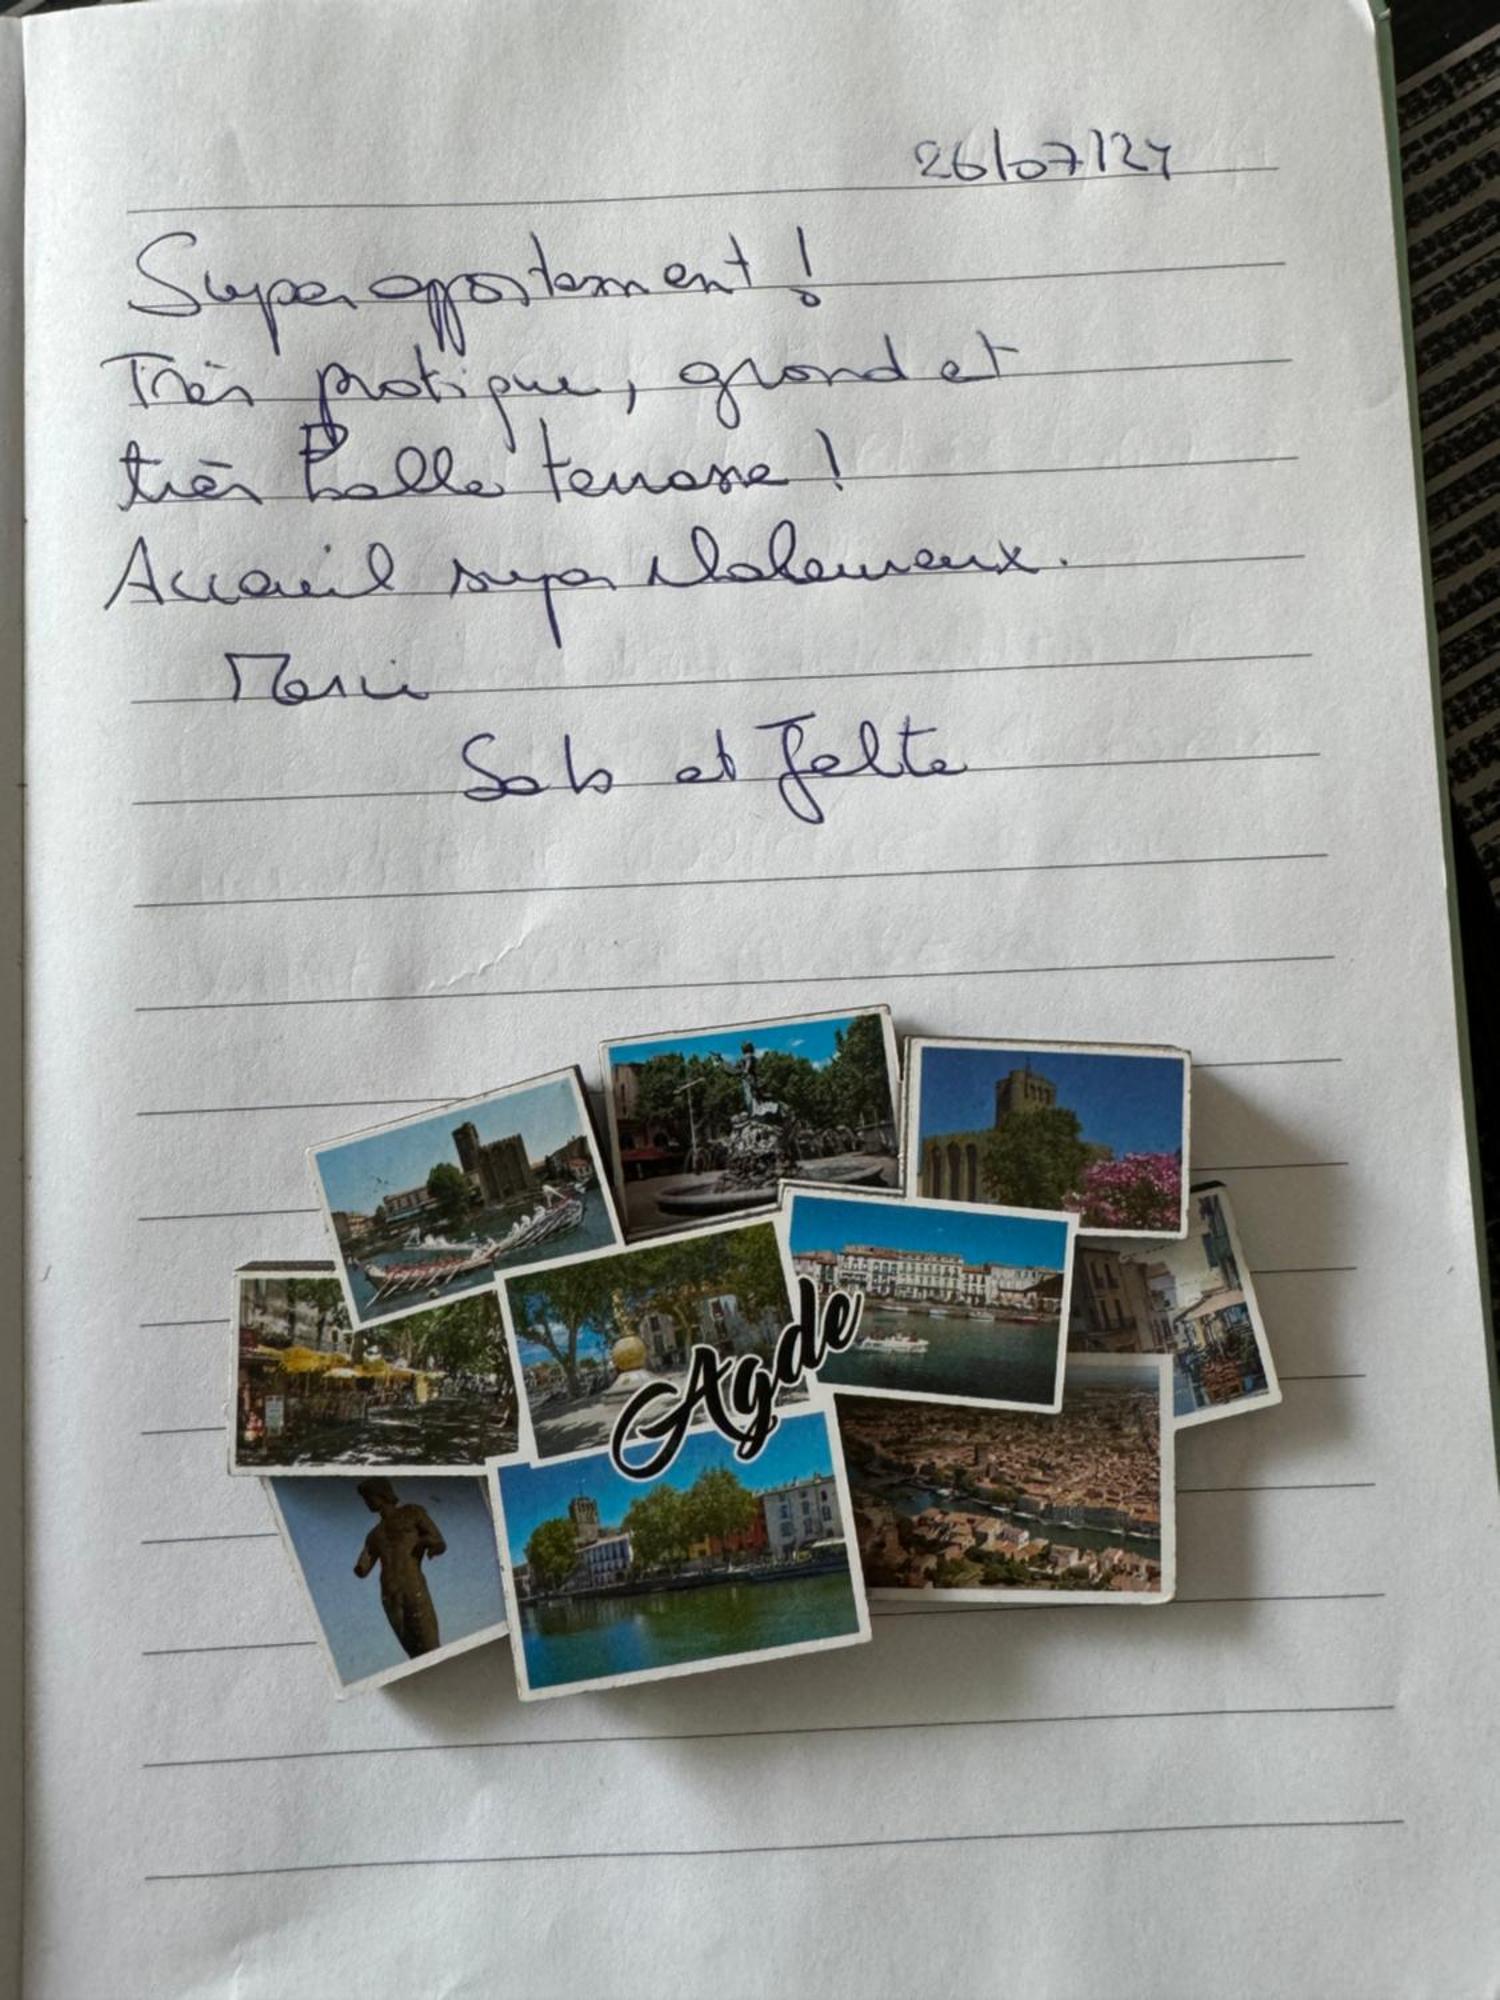 26/07/24
Super appartement !
Très pratique, grand et
très belle terrasse !
Accueil super chaleureux.
Merci
Seb et Jelte
Agde